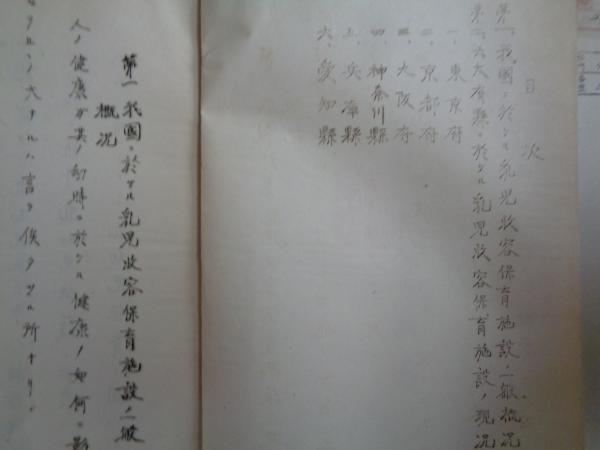 目次
第一、我國ニ於ケル乳兒收容保育施設ノ一般概況
第二、六大府縣ニ於ケル乳兒收容保育施設ノ現況
一、東京府
二、京都府
三、大阪府
四、神奈川縣
五、兵庫縣
六、愛知縣
第一 我國ニ於ケル乳兒收容保育施設ノ一般
概況
人ノ健康ガ其ノ幼時ニ於ケル健康ノ如何ニ影
ノ大ナルハ言ヲ俟タザル所ナリ。